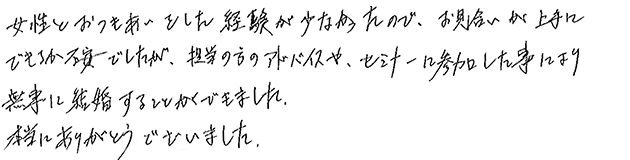 女性とおつきあいをした経験が少なかったので、お見合いが上手に
できるか不安でしたが、担当の方のアドバイスや、セミナーに参加した事により
無事に結婚することができました。
本当にありがとうございました。